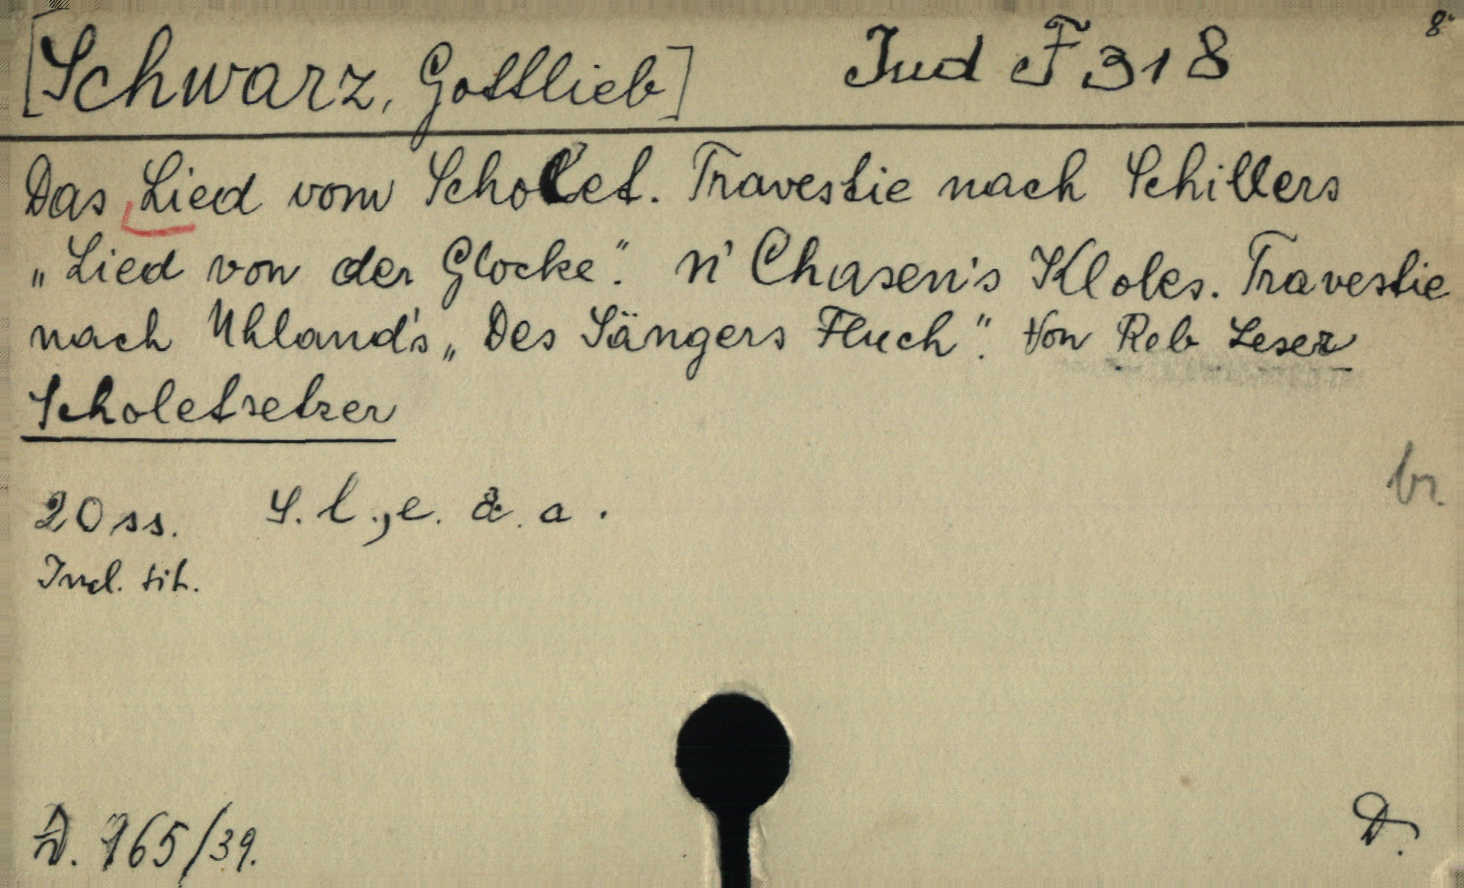 8°
[Schwarz, Gottlieb] Jud F 318
Das Lied vom Scholet. Travestie nach Schillers
„Lied von der Glocke“. N' Chasen's Kloles. Travestie
nach Uhland's „Des Sängers Fluch“. Von Reb Leser
Scholetsetzer
20 ss. S. l., e. & a.
br.
Jud. tit.
D. 165/39. D.